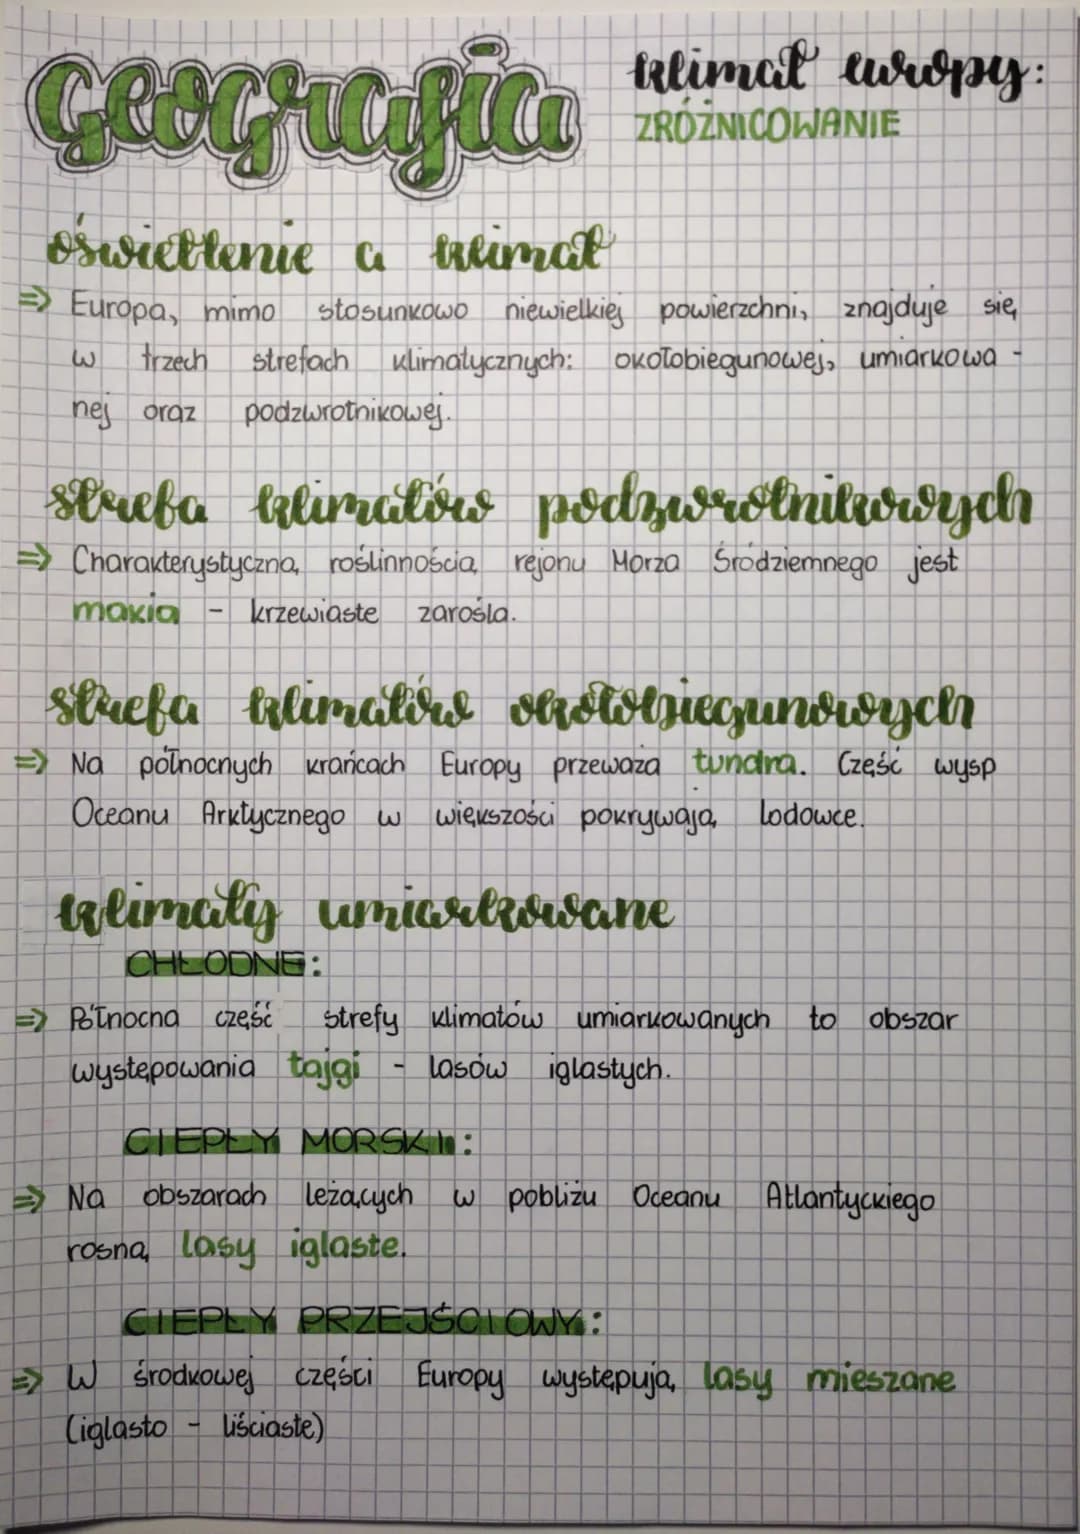 Geografia
klimat europy:
ZRÓŻNICOWANIE
oświetlenie a klimat
⇒ Europa, mimo stosunkowo niewielkiej powierzchni, znajduje się
w trzech strefach klimatycznych: okołobiegunowej, umiarkowa -
nej oraz podzwrotnikowej.
strefa klimatów podzwrotnikowych
⇒ Charakterystyczną roślinnością rejonu Morza Śródziemnego jest
makia - krzewiaste zarośla.
strefa klimatów okołobiegunowych
⇒ Na północnych krańcach Europy przeważa tundra. Część wysp
Oceanu Arktycznego w większości pokrywają lodowce.
klimaty umiarkowane
CHŁODNE:
⇒ Północna część strefy klimatów umiarkowanych to obszar
występowania tajgi - lasów iglastych.
CIEPŁY MORSKI:
⇒ Na obszarach leżących w pobliżu Oceanu Atlantyckiego
rosną lasy iglaste.
CIEPŁY PRZEJŚCIOWY:
⇒ W środkowej części Europy występują lasy mieszane
(iglasto - liściaste)